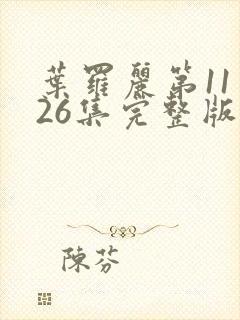 葉羅麗第11
26集完整版
陳芬